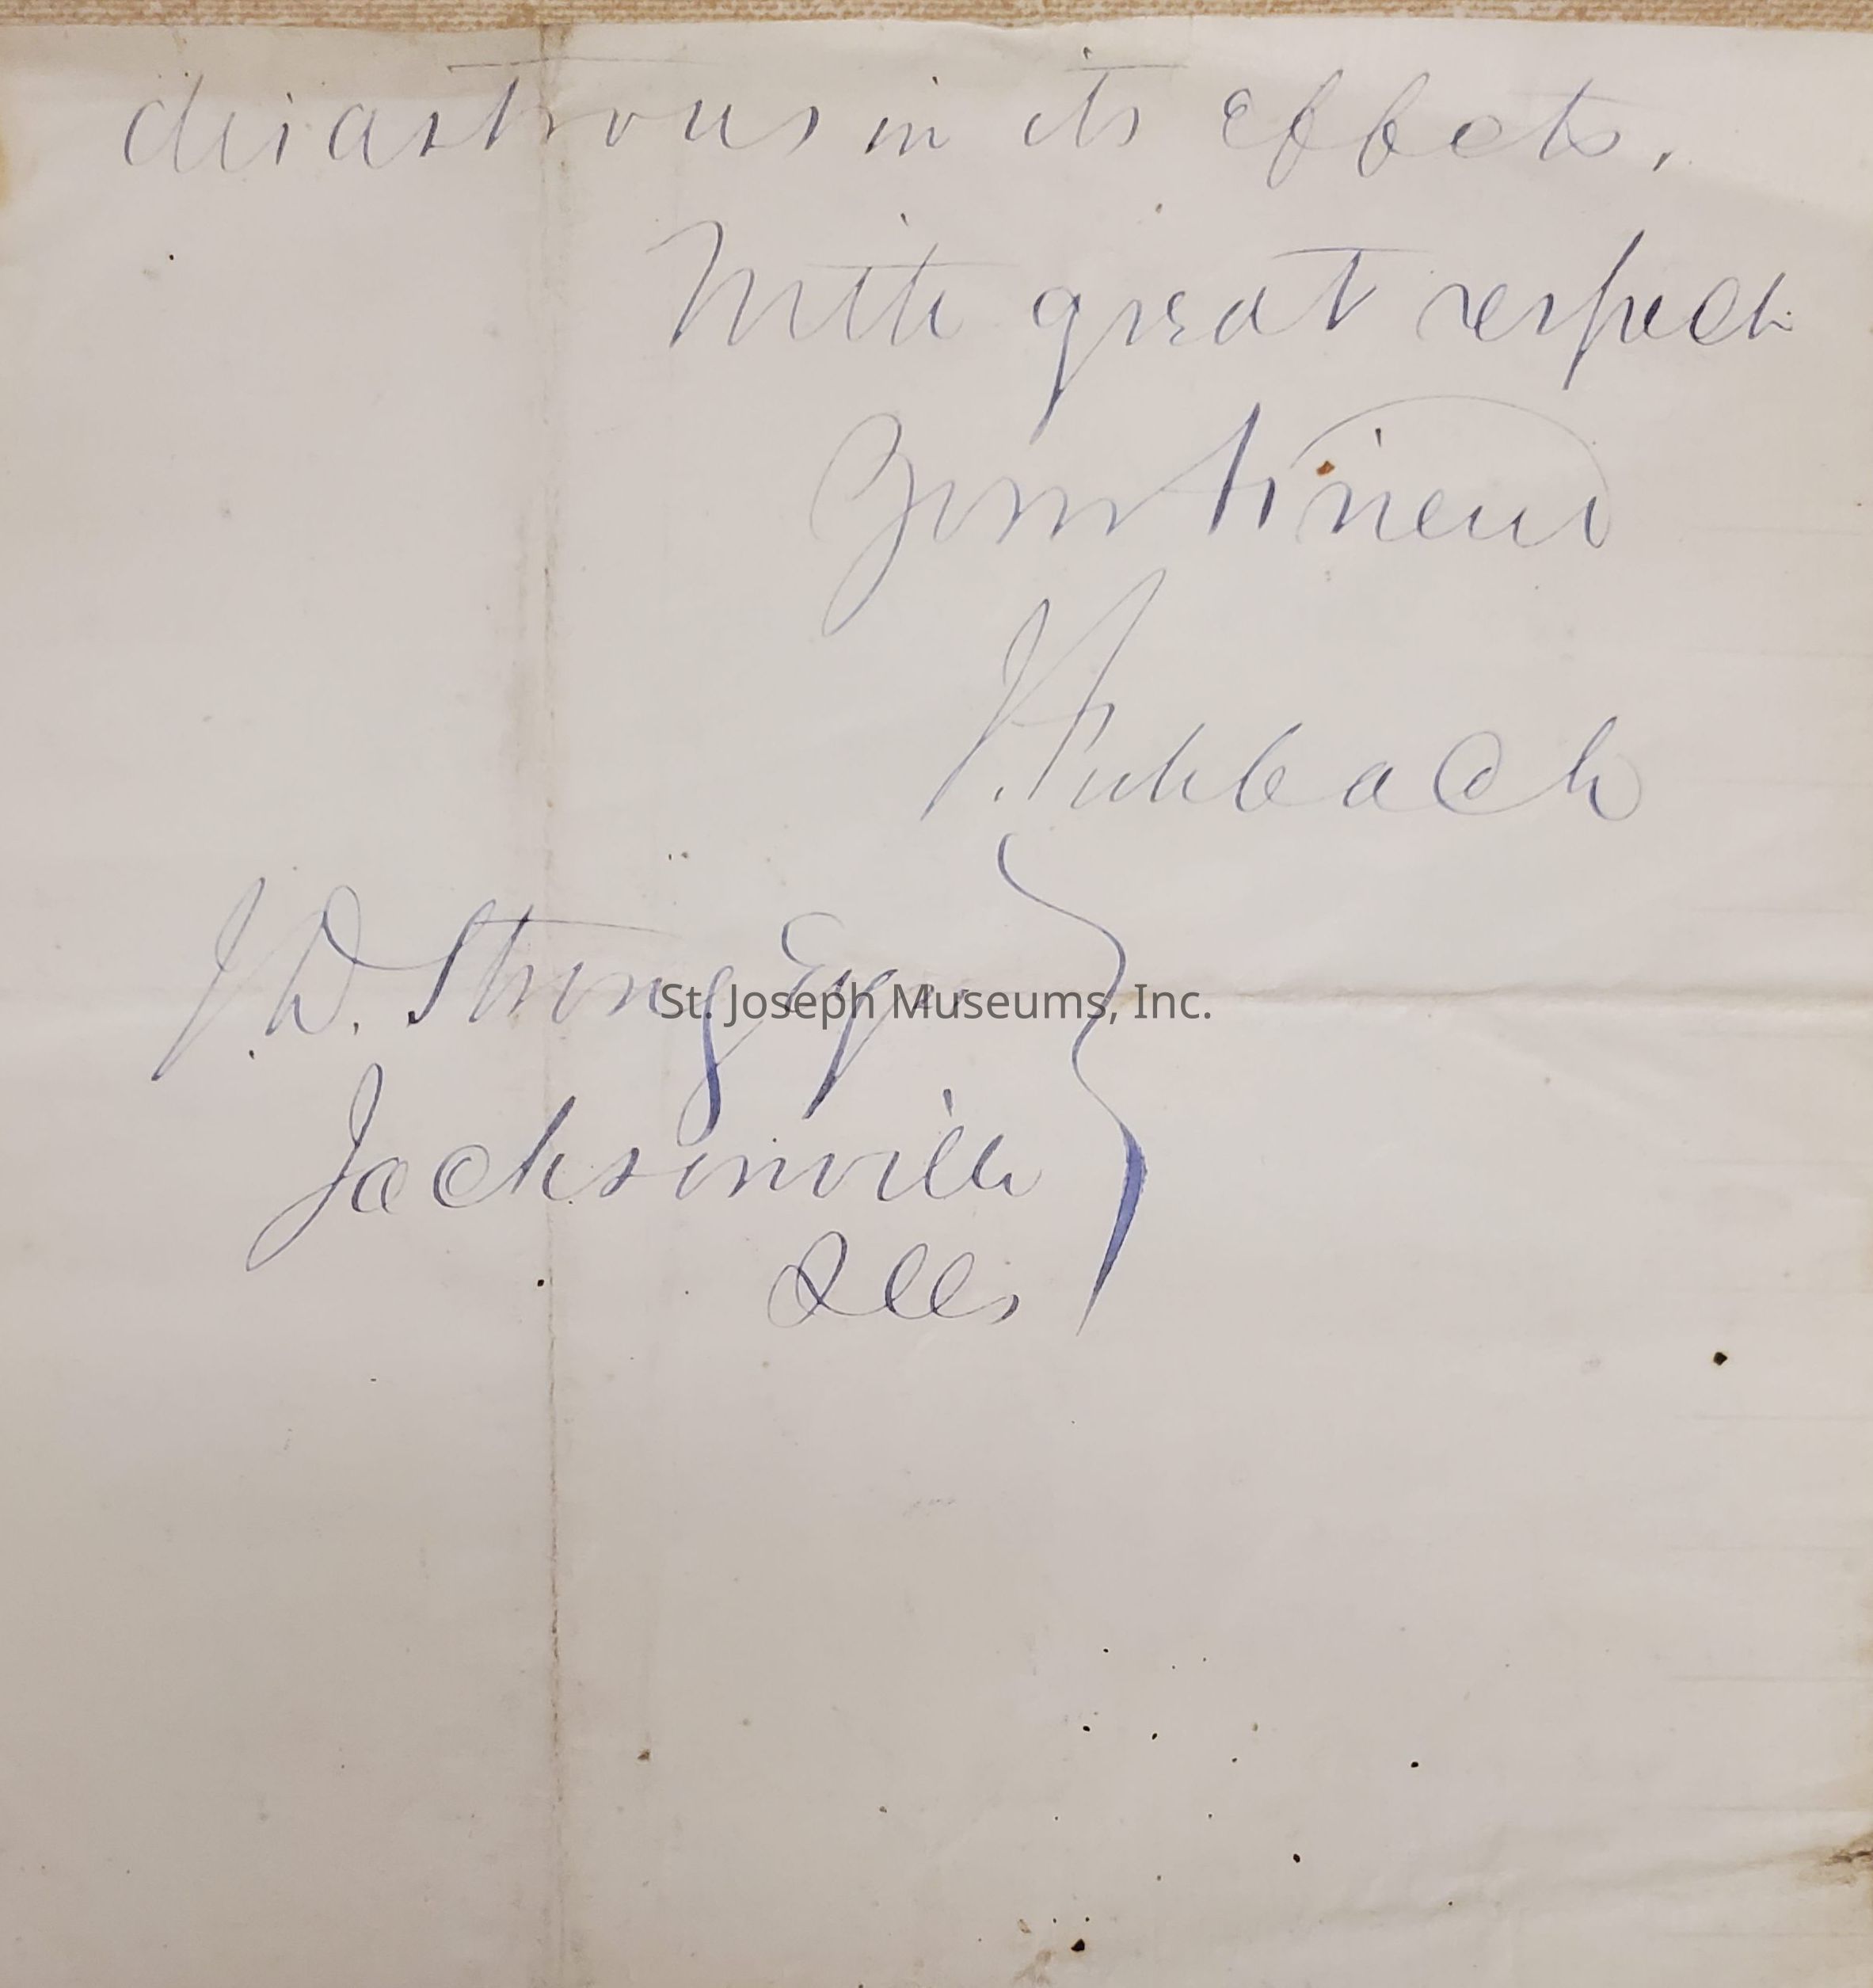 disastrous in its effects.
With great respect
Your friend
J. Fishback
J. D. Strong Esqr
St. Joseph Museums, Inc.
Jacksonville
Ills